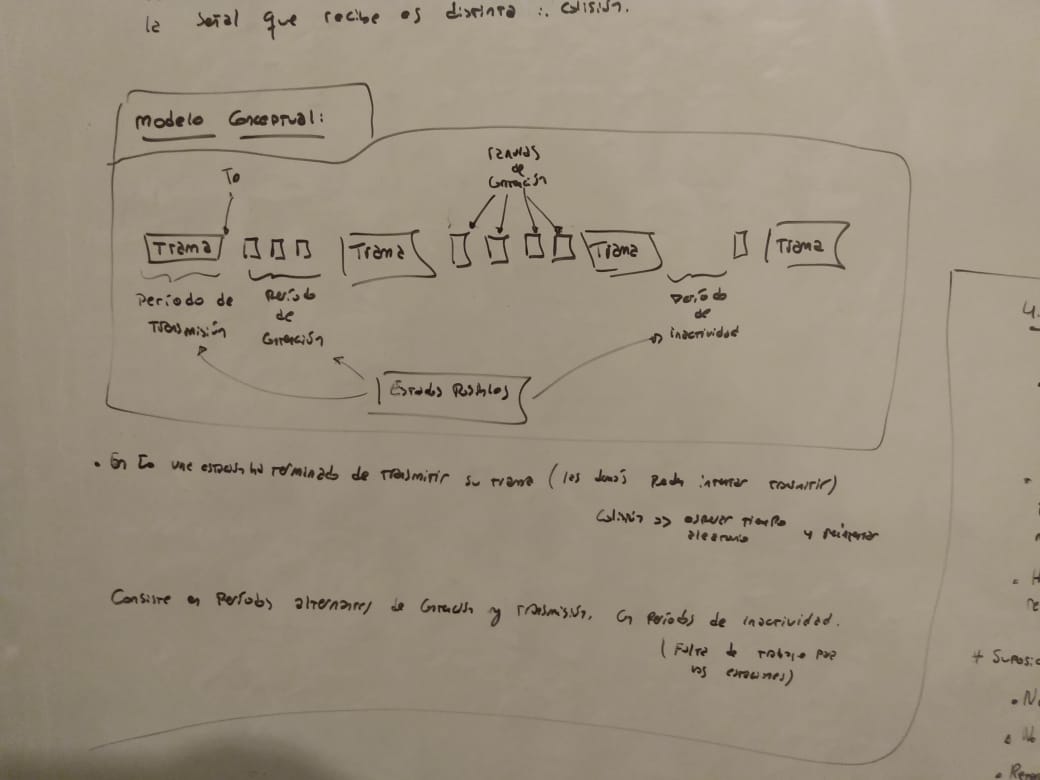 la señal que recibe es distinta ∴ colisión.
Modelo Conceptual:
Ranuras
de
Contención
To
Trama
Trama
Trama
Trama
Período de
Transmisión
Período
de
Contención
Período
de
inactividad
Estados Posibles
• En to una estación ha terminado de transmitir su trama (las demás Pueden intentar transmitir)
Colisión => esperar tiempo
aleatorio y reintentar
Consiste en Períodos alternantes de Contención y Transmisión, Con Períodos de inactividad.
(Falta de trabajo por
las estaciones)
4.
+ Suposic
• No
• No